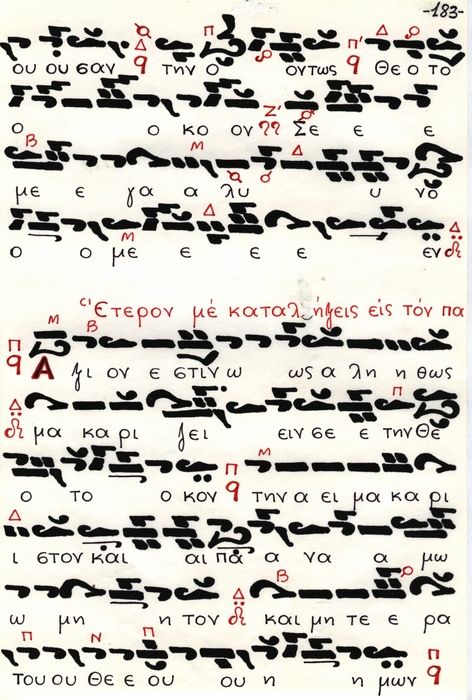 -183-
ου ου σαν την ο οντως Θε ο το
ο ο κο ον Σε ε ε ε
με ε γα α λυ υ νο
ο ο με ε ε ε εν
Ἕτερον μέ καταλήξεις εἰς τόν πα
Α ξι ον ε στιν ω ως α λη η θως
μα κα ρι ζει ειν σε ε την Θε
ο το ο κον την α ει μα κα ρι
ι στον και αι πα α να α μω
ω μη η τον και μη τε ε ρα
του ου Θε ε ου ου η η μων